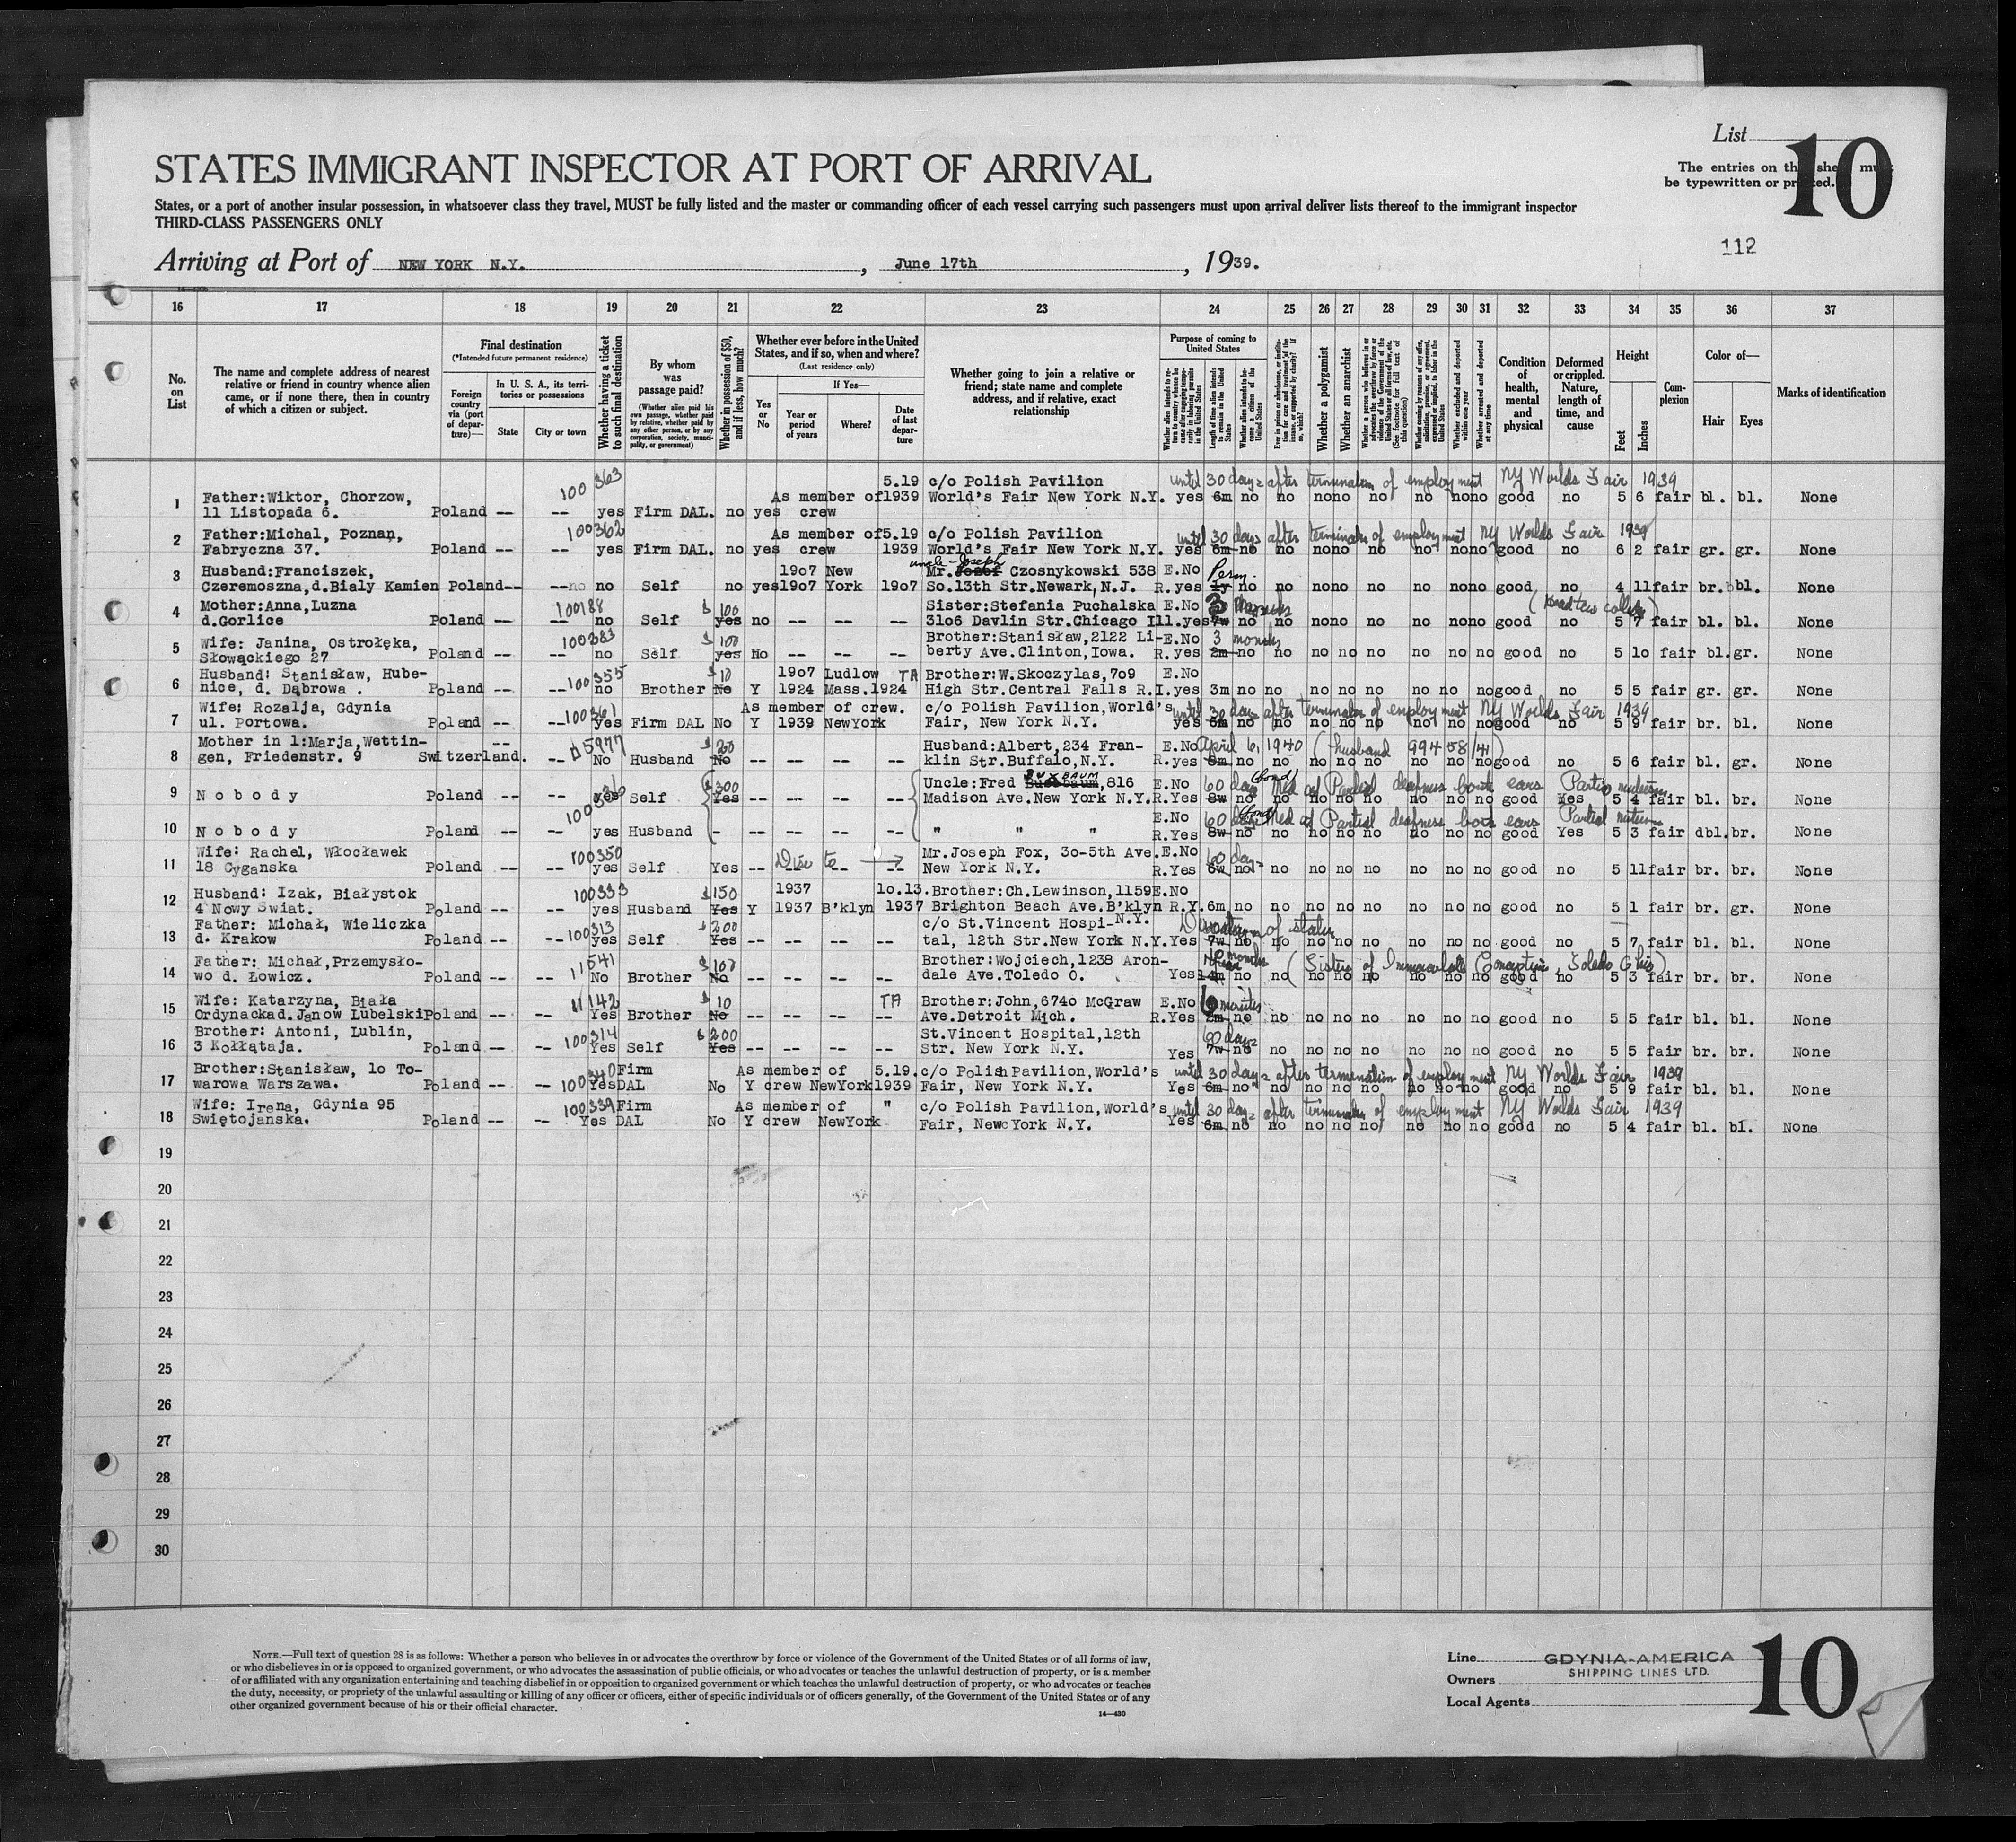 List
10
The entries on this sheet must
be typewritten or printed.
STATES IMMIGRANT INSPECTOR AT PORT OF ARRIVAL
States, or a port of another insular possession, in whatsoever class they travel, MUST be fully listed and the master or commanding officer of each vessel carrying such passengers must upon arrival deliver lists thereof to the immigrant inspector
THIRD-CLASS PASSENGERS ONLY
112
Arriving at Port of NEW YORK N.Y. , June 17th , 1939.
16 17 18 19 20 21 22 23 24 25 26 27 28 29 30 31 32 33 34 35 36 37
No. on List
The name and complete address of nearest relative or friend in country whence alien came, or if none there, then in country of which a citizen or subject.
Final destination
(*Intended future permanent residence)
Foreign country via (port of departure)—
In U. S. A., its territories or possessions
State
City or town
Whether having a ticket to such final destination
By whom was passage paid?
(Whether alien paid his own passage, whether paid by relative, whether paid by any other person, or by any corporation, society, municipality, or government)
Whether in possession of $50, and if less, how much?
Whether ever before in the United States, and if so, when and where?
(Last residence only)
Yes or No
If Yes—
Year or period of years
Where?
Date of last departure
Whether going to join a relative or friend; state name and complete address, and if relative, exact relationship
Purpose of coming to United States
Length of time alien intends to remain in the United States
Whether alien intends to become a citizen of the United States
Whether a polygamist
Whether an anarchist
(See footnote for full text of this question)
Whether excluded and deported within one year
Whether arrested and deported at any time
Condition of health, mental and physical
Deformed or crippled. Nature, length of time, and cause
Height
Feet
Inches
Complexion
Color of—
Hair
Eyes
Marks of identification
100363 5.19 c/o Polish Pavilion until 30 days after termination of employment NY Worlds Fair 1939
1 Father:Wiktor, Chorzow, As member of 1939 World's Fair New York N.Y. yes 6m no no no no no no no no good no 5 6 fair bl. bl. None
11 Listopada 6. Poland -- -- yes Firm DAL. no yes crew
100362 As member of 5.19 c/o Polish Pavilion until 30 days after termination of employment NY Worlds Fair 1939
2 Father:Michal, Poznan,
Fabryczna 37. Poland -- -- yes Firm DAL. no yes crew 1939 World's Fair New York N.Y. yes 6m no no no no no no no no good no 6 2 fair gr. gr. None
uncle-Joseph
3 Husband:Franciszek, 1907 New Mr. Jozef Czosnykowski 538 E.No Perm.
Czeremoszna,d.Bialy Kamien Poland-- --no no Self no yes1907 York 1907 So.13th Str.Newark,N.J. R.yes 1y no no no no no no no no good no 4 11 fair br. bl. None
4 Mother:Anna,Luzna 100188 $100 Sister:Stefania Puchalska E.No 3 months
d.Gorlice Poland -- -- no Self yes no -- -- -- 3106 Davlin Str.Chicago Ill.yes 7w no no no no no no no no good no 5 7 fair bl. bl. None
5 Wife: Janina, Ostrołęka, 100383 $100 Brother:Stanisław,2122 Li- E.No 3 months
Słowackiego 27 Poland -- -- no Self yes No -- -- -- berty Ave.Clinton,Iowa. R.yes 2m no no no no no no no no good no 5 10 fair bl.gr. None
6 Husband: Stanisław, Hube- 100355 $10 1907 Ludlow TA Brother:W.Skoczylas,709 E.No
nice, d. Dąbrowa . Poland -- -- no Brother No Y 1924 Mass.1924 High Str.Central Falls R.I.yes 3m no no no no no no no no good no 5 5 fair gr. gr. None
7 Wife: Rozalja, Gdynia 100361 As member of crew. c/o Polish Pavilion,World's until 30 days after termination of employment NY Worlds Fair 1939
ul. Portowa. Poland -- -- yes Firm DAL No Y 1939 NewYork Fair, New York N.Y. yes 6m no no no no no no no no good no 5 9 fair br. bl. None
8 Mother in l:Marja,Wettin- -- $20 Husband:Albert,234 Fran- E.No April 6, 1940 (husband 99458/41)
gen, Friedenstr. 9 Switzerland. -- No Husband No -- -- -- -- klin Str.Buffalo,N.Y. R.yes 8m no no no no no no no no good no 5 6 fair bl. gr. None
BUXBAUM
9 $300 Uncle:Fred Bussbaum,816 E.No 60 days (bond) Med of Partial deafness both ears Partial mutism
Nobody Poland -- -- yes Self Yes -- -- -- -- Madison Ave.New York N.Y.R.Yes 8w no no no no no no no no good Yes 5 4 fair bl. br. None
E.No 60 days (bond) Med of Partial deafness both ears Partial mutism
10 Nobody Poland -- -- yes Husband - -- -- -- -- " " " R.Yes 8w no no no no no no no no good Yes 5 3 fair dbl.br. None
11 Wife: Rachel, Włocławek 100350 Mr.Joseph Fox, 30-5th Ave.E.No 60 days
18 Cyganska Poland -- -- yes Self Yes -- -- -- -- New York N.Y. R.Yes 6w no no no no no no no no good no 5 11 fair br. br. None
12 Husband: Izak, Białystok 100333 $150 1937 10.13. Brother:Ch.Lewinson,1159 E.No
4 Nowy Swiat. Poland -- -- yes Husband Yes Y 1937 B'klyn 1937 Brighton Beach Ave.B'klyn R.Y. 6m no no no no no no no no good no 5 1 fair br. gr. None
13 Father: Michał, Wieliczka 100313 $200 c/o St.Vincent Hospi- N.Y. Duration of status
d. Krakow Poland -- -- yes Self Yes -- -- -- -- tal, 12th Str.New York N.Y.Yes 7w no no no no no no no no good no 5 7 fair bl. bl. None
14 Father: Michał,Przemysło- 11541 Brother:Wojciech,1238 Aron- months (Sisters of Immaculate Conception Toledo Ohio)
wo d. Łowicz. Poland -- -- No Brother No -- -- -- -- dale Ave.Toledo O. Yes 14m no no no no no no no no good no 5 3 fair br. br. None
15 Wife: Katarzyna, Biała 11142 $10 TA Brother:John,6740 McGraw E.No 6 months
Ordynackad.Janow LubelskiPoland -- -- Yes Brother No -- -- -- -- Ave.Detroit Mich. R.Yes 2m no no no no no no no no good no 5 5 fair bl. bl. None
16 Brother: Antoni, Lublin, 100314 $200 St.Vincent Hospital,12th 60 days
3 Kołłątaja. Poland -- -- Yes Self Yes -- -- -- -- Str. New York N.Y. Yes 7w no no no no no no no no good no 5 5 fair br. br. None
17 Brother:Stanisław, 10 To- 100340 Firm As member of 5.19. c/o Polish Pavilion,World's until 30 days after termination of employment NY Worlds Fair 1939
warowa Warszawa. Poland -- -- Yes DAL No Y crew NewYork 1939 Fair, New York N.Y. Yes 6m no no no no no no no no good no 5 9 fair bl. bl. None
18 Wife: Irena, Gdynia 95 100339 Firm As member of " c/o Polish Pavilion,World's until 30 days after termination of employment NY Worlds Fair 1939
Swiętojanska. Poland -- -- Yes DAL No Y crew NewYork Fair, NewcYork N.Y. Yes 6m no no no no no no no no good no 5 4 fair bl. bl. None
19
20
21
22
23
24
25
26
27
28
29
30
NOTE.—Full text of question 28 is as follows: Whether a person who believes in or advocates the overthrow by force or violence of the Government of the United States or of all forms of law,
or who disbelieves in or is opposed to organized government, or who advocates the assassination of public officials, or who advocates or teaches the unlawful destruction of property, or is a member
of or affiliated with any organization entertaining and teaching disbelief in or opposition to organized government or which teaches the unlawful destruction of property, or who advocates or teaches
the duty, necessity, or propriety of the unlawful assaulting or killing of any officer or officers, either of specific individuals or of officers generally, of the Government of the United States or of any
other organized government because of his or their official character.
14—430
Line GDYNIA-AMERICA
SHIPPING LINES LTD.
Owners
Local Agents
10